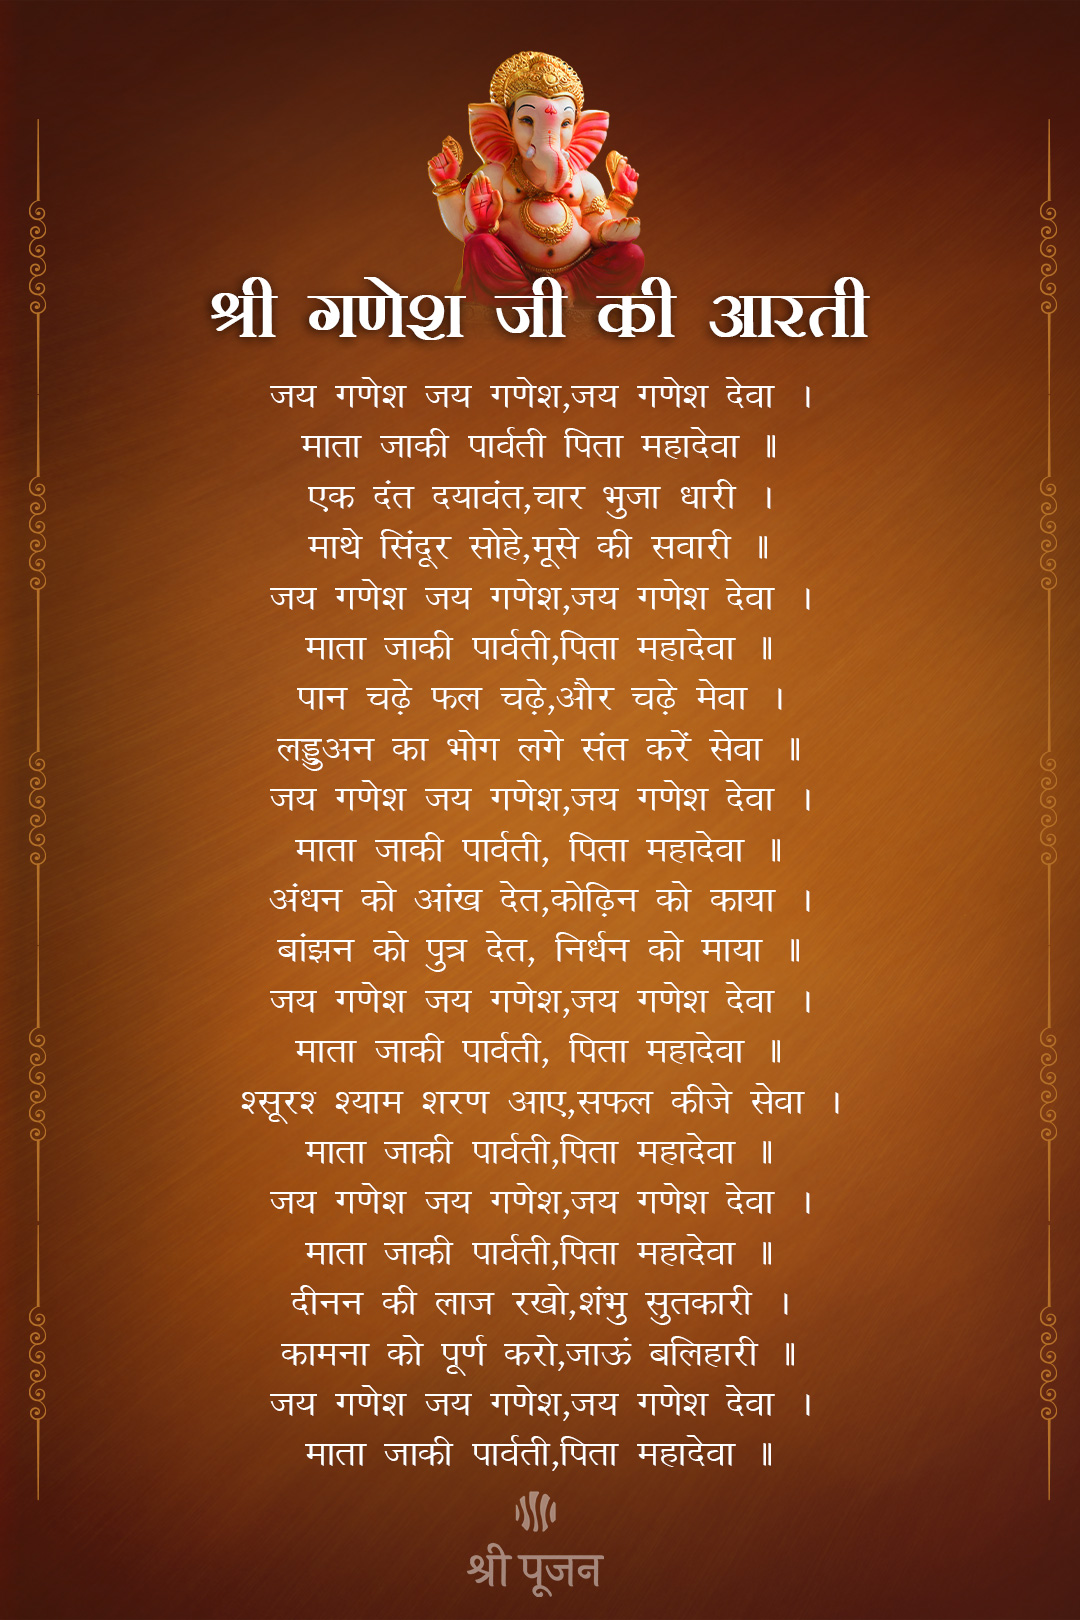 श्री गणेश जी की आरती
जय गणेश जय गणेश,जय गणेश देवा ।
माता जाकी पार्वती पिता महादेवा ॥
एक दंत दयावंत,चार भुजा धारी ।
माथे सिंदूर सोहे,मूसे की सवारी ॥
जय गणेश जय गणेश,जय गणेश देवा ।
माता जाकी पार्वती,पिता महादेवा ॥
पान चढ़े फल चढ़े,और चढ़े मेवा ।
लड्डुअन का भोग लगे संत करें सेवा ॥
जय गणेश जय गणेश,जय गणेश देवा ।
माता जाकी पार्वती, पिता महादेवा ॥
अंधन को आंख देत,कोढ़िन को काया ।
बांझन को पुत्र देत, निर्धन को माया ॥
जय गणेश जय गणेश,जय गणेश देवा ।
माता जाकी पार्वती, पिता महादेवा ॥
श्सूरश् श्याम शरण आए,सफल कीजे सेवा ।
माता जाकी पार्वती,पिता महादेवा ॥
जय गणेश जय गणेश,जय गणेश देवा ।
माता जाकी पार्वती,पिता महादेवा ॥
दीनन की लाज रखो,शंभु सुतकारी ।
कामना को पूर्ण करो,जाऊं बलिहारी ॥
जय गणेश जय गणेश,जय गणेश देवा ।
माता जाकी पार्वती,पिता महादेवा ॥
श्री पूजन